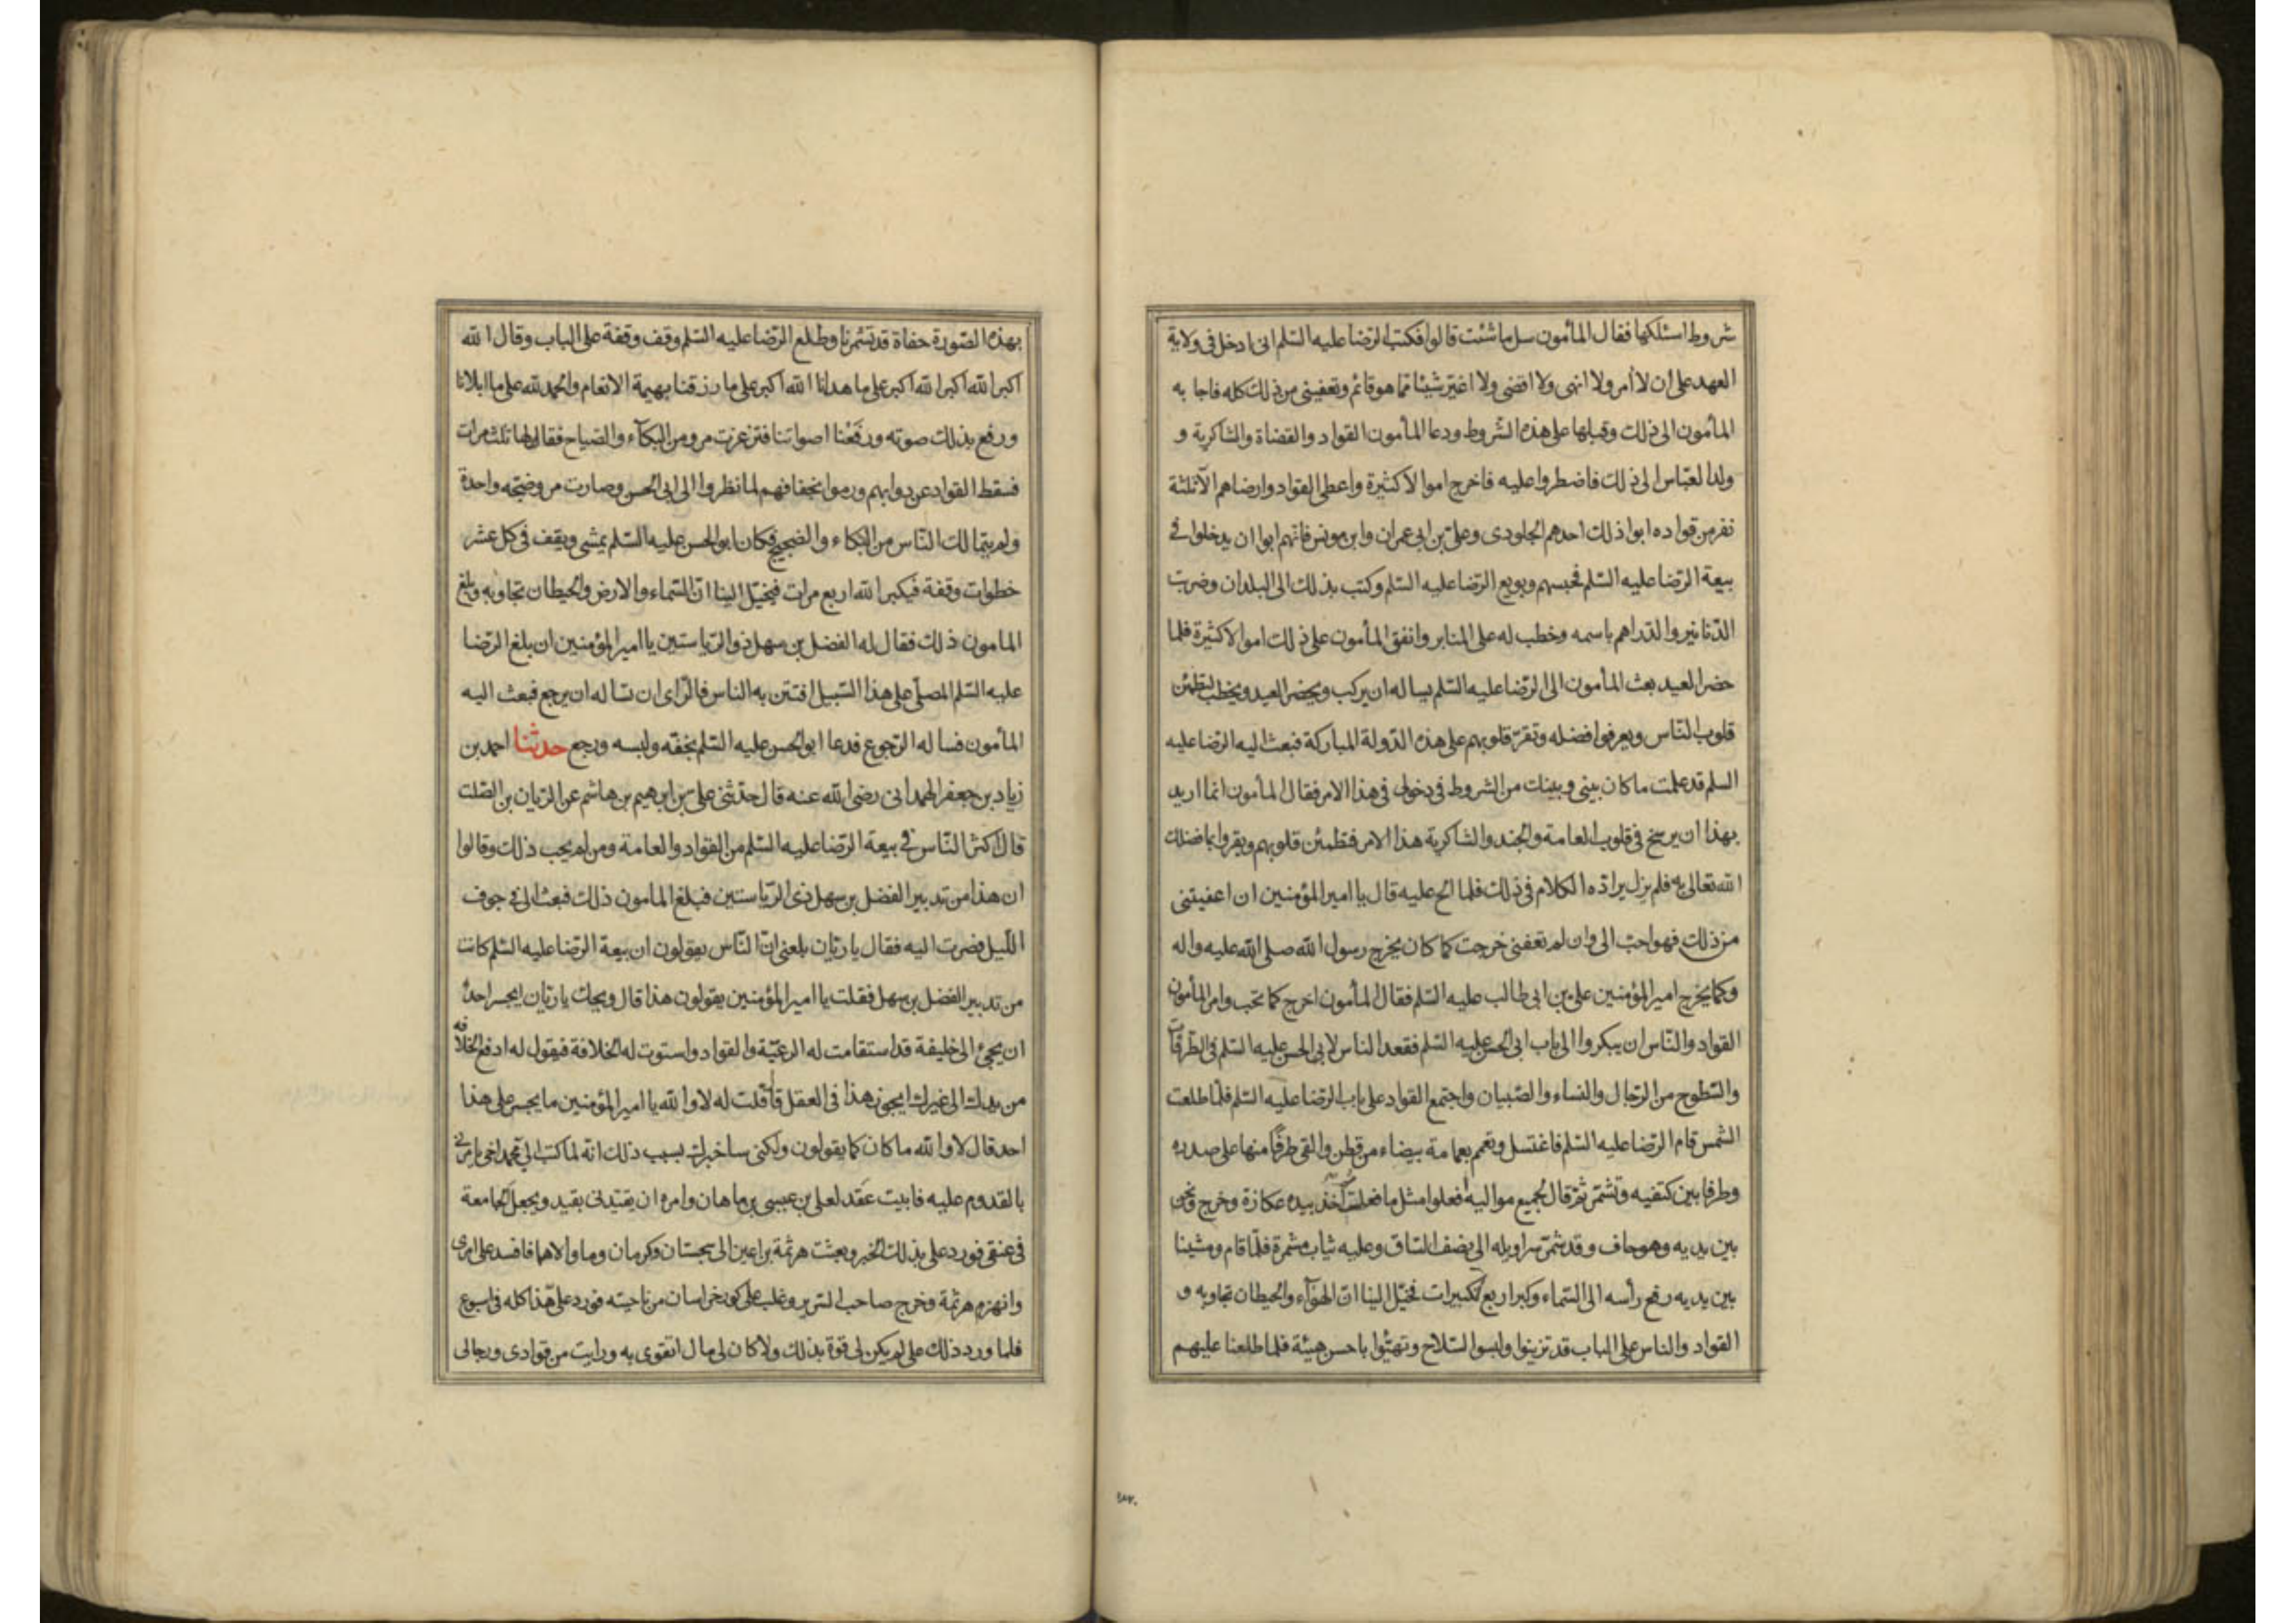 شروط اسئلكها فقال المأمون سل ما شئت قالوا فكتب الرضا عليه السلم انى ادخل فى ولاية
العهد على ان لا أمر ولا انهى ولا اقضى ولا اغيّر شيئا مما هو قائم وتعفينى من ذلك كله فاجابه
المأمون الى ذلك وقبلها على هذه الشروط ودعا المأمون القواد والقضاة والشاكرية و
ولد العبّاس الى ذلك فاضطروا عليه فاخرج اموالا كثيرة واعطى القواد وارضاهم الا ثلثة
نفر من قواده ابوا ذلك احدهم الجلودى وعلىّ بن ابى عمران وابن مونس فانهم ابوا ان يدخلوا فى
بيعة الرضا عليه السّلم فحبسهم وبويع الرضا عليه السّلم وكتب بذلك الى البلدان وضربت
الدّنانير والدّراهم باسمه وخطب له على المنابر وانفق المأمون على ذلك اموالا كثيرة فلما
حضر العيد بعث المأمون الى الرّضا عليه السّلم يساله ان يركب ويحضر العيد ويخطب لتطمئن
قلوب الناس ويعرفوا فضله وتقرّ قلوبهم على هذه الدّولة المباركة فبعث اليه الرضا عليه
السلم قد علمت ما كان بينى وبينك من الشروط فى دخولى فى هذا الامر فقال المأمون انما اريد
بهذا ان يرسخ فى قلوب العامة والجند والشاكرية هذا الامر فتطمئن قلوبهم ويقروا بما فضلك
الله تعالى به فلم يزل يرادّه الكلام فى ذلك فلما الح عليه قال يا امير المؤمنين ان اعفيتنى
من ذلك فهو احبّ الى وان لم تعفنى خرجت كما كان يخرج رسول الله صلى الله عليه واله
وكما يخرج امير المؤمنين على بن ابى طالب عليه السّلم فقال المأمون اخرج كما تحب وامر المأمون
القواد والنّاس ان يبكروا الى باب ابى الحسن عليه السّلم فقعد الناس لابى الحسن عليه السّلم فى الطّرقات
والسّطوح من الرّجال والنساء والصّبيان واجتمع القواد على باب الرّضا عليه السّلم فلمّا طلعت
الشمس قام الرضا عليه السّلم فاغتسل وتعمم بعمامة بيضاء من قطن والقى طرفًا منها على صدره
وطرفا بين كتفيه وتشمّر ثمّ قال لجميع مواليه افعلوا مثل ما فعلت ثم اخذ بيده عكازة وخرج ونحن
بين يديه وهو حاف وقد شمّر سراويله الى نصف السّاق وعليه ثياب مشمرة فلمّا قام ومشينا
بين يديه رفع رأسه الى السّماء وكبر اربع تكبيرات فخيّل الينا انّ الهوآء والحيطان تجاوبه و
القواد والناس على الباب قد تزينوا ولبسوا السّلاح وتهيّؤا باحسن هيئة فلما طلعنا عليهم
١٨٠
بهذه الصّورة حفاة قد تشمّرنا وطلع الرّضا عليه السّلم وقف وقفة على الباب وقال الله
اكبر الله اكبر الله اكبر على ما هدانا الله اكبر على ما رزقنا بهيمة الانعام والحمد لله على ما ابلانا
ورفع بذلك صوته ورفَعْنا اصواتنا فتزعزعت مرو من البكآء والصّياح فقالها ثلث مرات
فسقط القواد عن دوابهم ورموا بخفافهم لما نظروا الى ابى الحسن وصارت مرو ضجّة واحدة
ولم يتمالك النّاس من البكاء والضجيج فكان ابو الحسن عليه السّلم يمشى ويقف فى كل عشر
خطوات وقفة فيكبر الله اربع مرات فيخيّل الينا انّ السّماء والارض والحيطان تجاوبه وبلغ
المامون ذلك فقال له الفضل بن سهل ذو الرّياستين يا امير المؤمنين ان بلغ الرّضا
عليه السّلم المصلّى على هذا السّبيل افتتن به الناس فالرّاى ان تساله ان يرجع فبعث اليه
المأمون فساله الرّجوع فدعا ابو الحسن عليه السّلم بخفّه ولبسه ورجع حدثنا احمد بن
زياد بن جعفر الهمدانى رضى الله عنه قال حدّثنى على بن ابرهيم بن هاشم عن الريان بن الصّلت
قال اكثر النّاس فى بيعة الرّضا عليه السّلم من القواد والعامة ومن لم يحب ذلك وقالوا
ان هذا من تدبير الفضل بن سهل ذى الرّياستين فبلغ المامون ذلك فبعث الى فى جوف
اللّيل فصرت اليه فقال يا ريّان بلغنى انّ النّاس يقولون ان بيعة الرّضا عليه السّلم كانت
من تدبير الفضل بن سهل فقلت يا امير المؤمنين يقولون هذا قال ويحك يا ريّان ايجسر احدٌ
ان يجئ الى خليفة قد استقامت له الرعيّة والقواد واستوت له الخلافة فيقول له ادفع الخلافة
من يدك الى غيرك ايجوز هذا فى العقل قال قلت له لا والله يا امير المؤمنين ما يجسر على هذا
احد قال لا والله ما كان كما يقولون ولكنى ساخبرك بسبب ذلك انه لما كتب الى محمد اخى يامرنى
بالقدوم عليه فابيت عَقَد لعلى بن عيسى بن ماهان وامره ان يقيّدنى بقيد ويجعل الجامعة
فى عنقى فورد على بذلك الخبر وبعثت هرثمة بن اعين الى سجستان وكرمان وما والاهما فافسد على امرى
وانهزم هرثمة وخرج صاحب السّرير وغلب على كور خراسان من ناحيته فورد على هذا كله فى اسبوع
فلما ورد ذلك على لم يكن لى قوة بذلك ولا كان لى مال اتقوى به ورايت من قوادى ورجالى